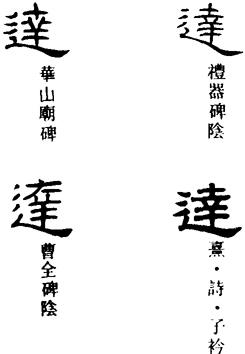 達
華山廟碑
達
禮器碑陰
達
曹全碑陰
達
熹・詩・子衿